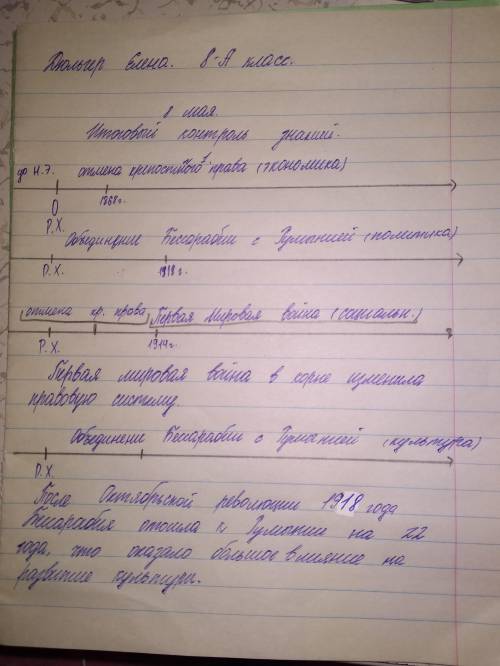 Дюльгер Елена. 8-А класс.
8 мая.
Итоговый контроль знаний.
до н.э. отмена крепостного права (экономика)
0 1868г.
Р.Х.
Объединение Бессарабии с Румынией (политика)
Р.Х. 1918г.
отмена кр. права Первая Мировая война (социальн.)
Р.Х. 1914г.
Первая мировая война в корне изменила
правовую систему.
Объединение Бессарабии с Румынией (культура)
Р.Х.
После Октябрьской революции 1918 года
Бесарабия отошла к Румынии на 22
года, что оказало большое влияние на
развитие культуры.